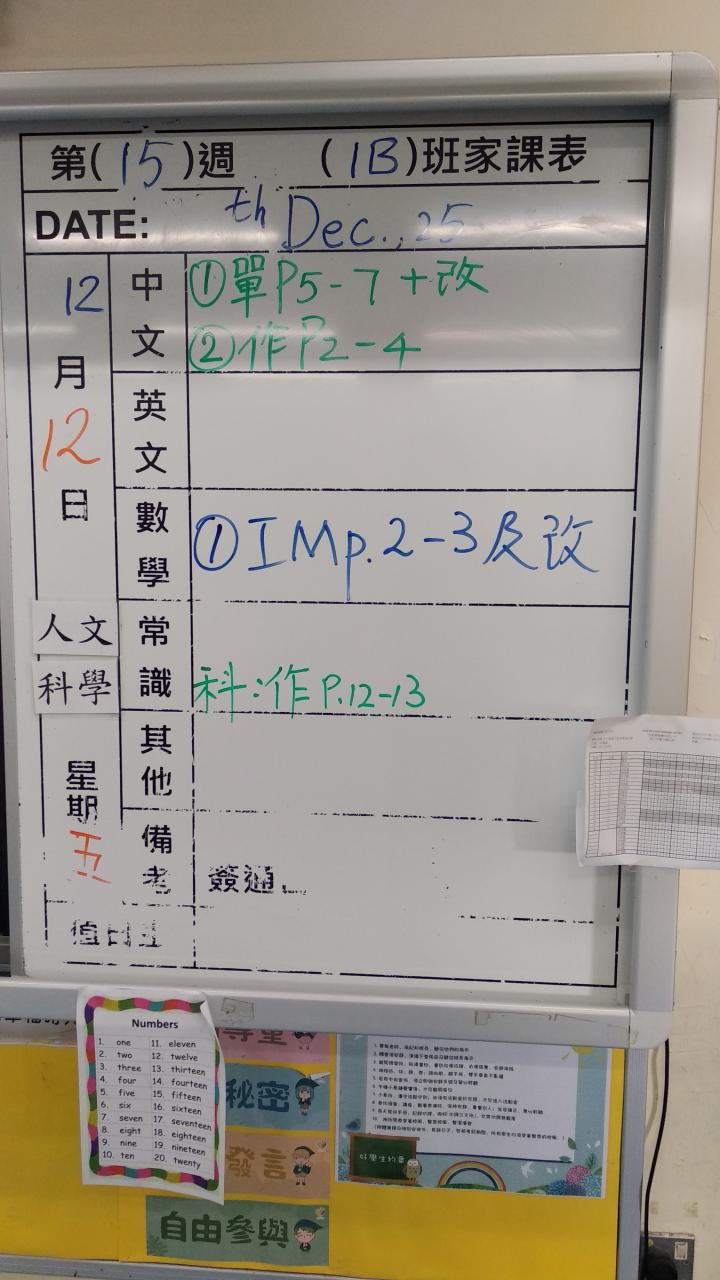 第(15)週 (1B)班家課表
DATE: th Dec., 25
12
月
12
日
人文
科學
星期
五
中文
①單P5-7+改
②作P2-4
英文
數學
①IMp.2-3及改
常識
科:作P.12-13
其他
備考
簽通
值日生
Numbers
1. one
2. two
3. three
4. four
5. five
6. six
7. seven
8. eight
9. nine
10. ten
11. eleven
12. twelve
13. thirteen
14. fourteen
15. fifteen
16. sixteen
17. seventeen
18. eighteen
19. nineteen
20. twenty
秘密
發言
自由參與
好學生約章